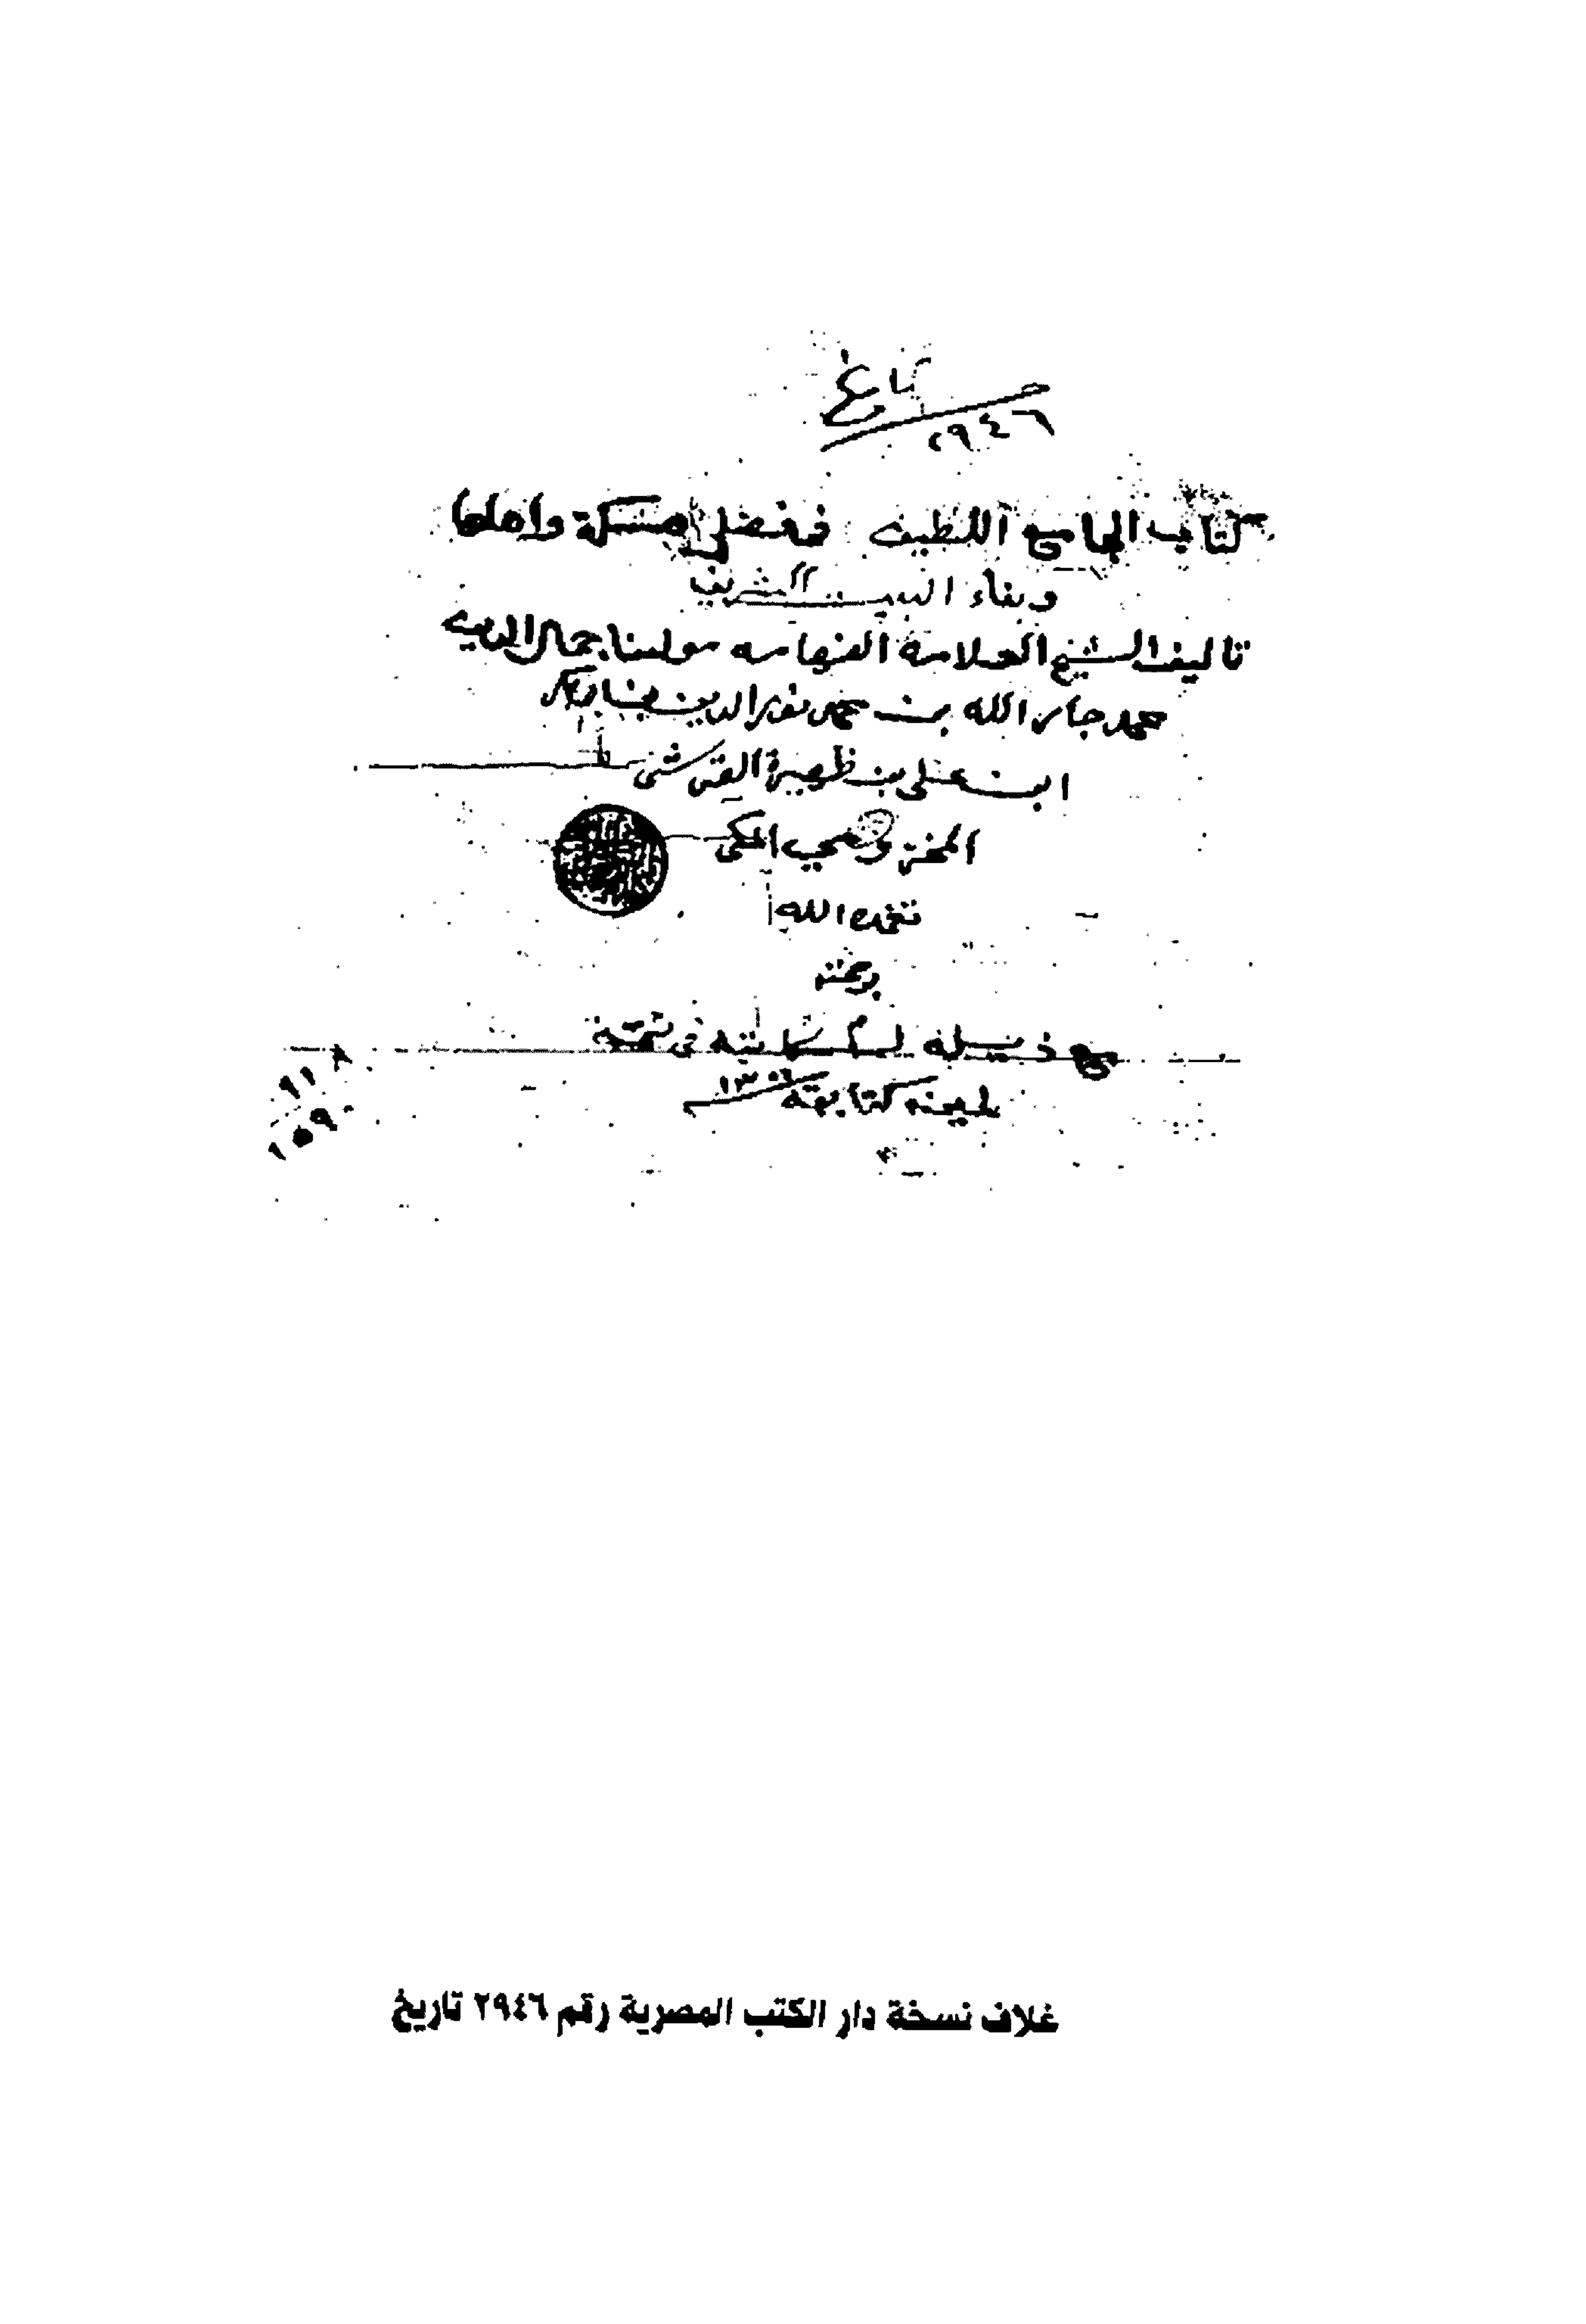 تاريخ
٢٩٤٦
كتاب الجامع اللطيف في فضل مكة واهلها
وبناء البيت الشريف
تاليف الشيخ العلامة الفهامه مولانا جمال الدين
محمد جار الله بن محمد نور الدين بن ابي بكر
ابن علي بن ظهيرة القرشي
المخزومي المكي
تغمده الله
برحمته
مع ذيله في تتمة
كتابته ١٣٠٦
غلاف نسخة دار الكتب المصرية رقم ٢٩٤٦ تاريخ